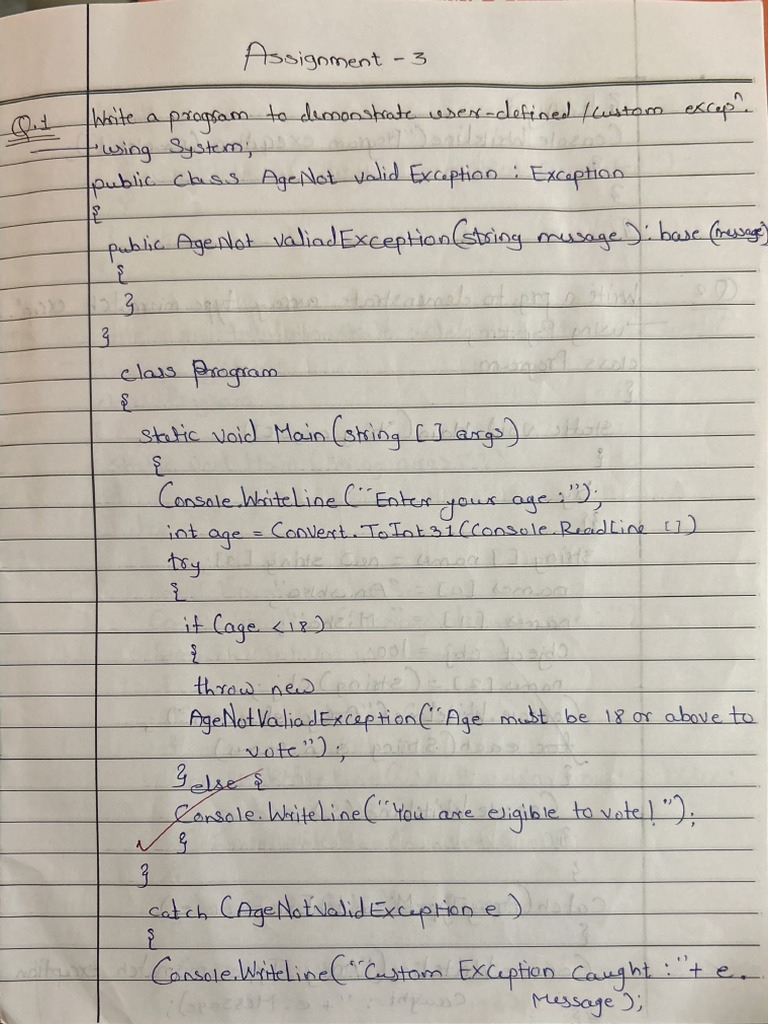 Assignment - 3
Q.1 Write a program to demonstrate user-defined / custom excepⁿ.
using System;
public class AgeNot valid Exception : Exception
{
public AgeNot valiadException(string message) : base (message)
{
}
}
class Program
{
static void Main(string [] args)
{
Console.WriteLine("Enter your age :");
int age = Convert.ToInt31(Console.ReadLine [])
try
{
if (age <18)
{
throw new
AgeNotValiadException("Age must be 18 or above to
vote");
} else {
Console.WriteLine("You are eligible to vote!");
}
}
catch (AgeNotValidException e)
{
Console.WriteLine("Custom Exception Caught :"+ e.
Message);